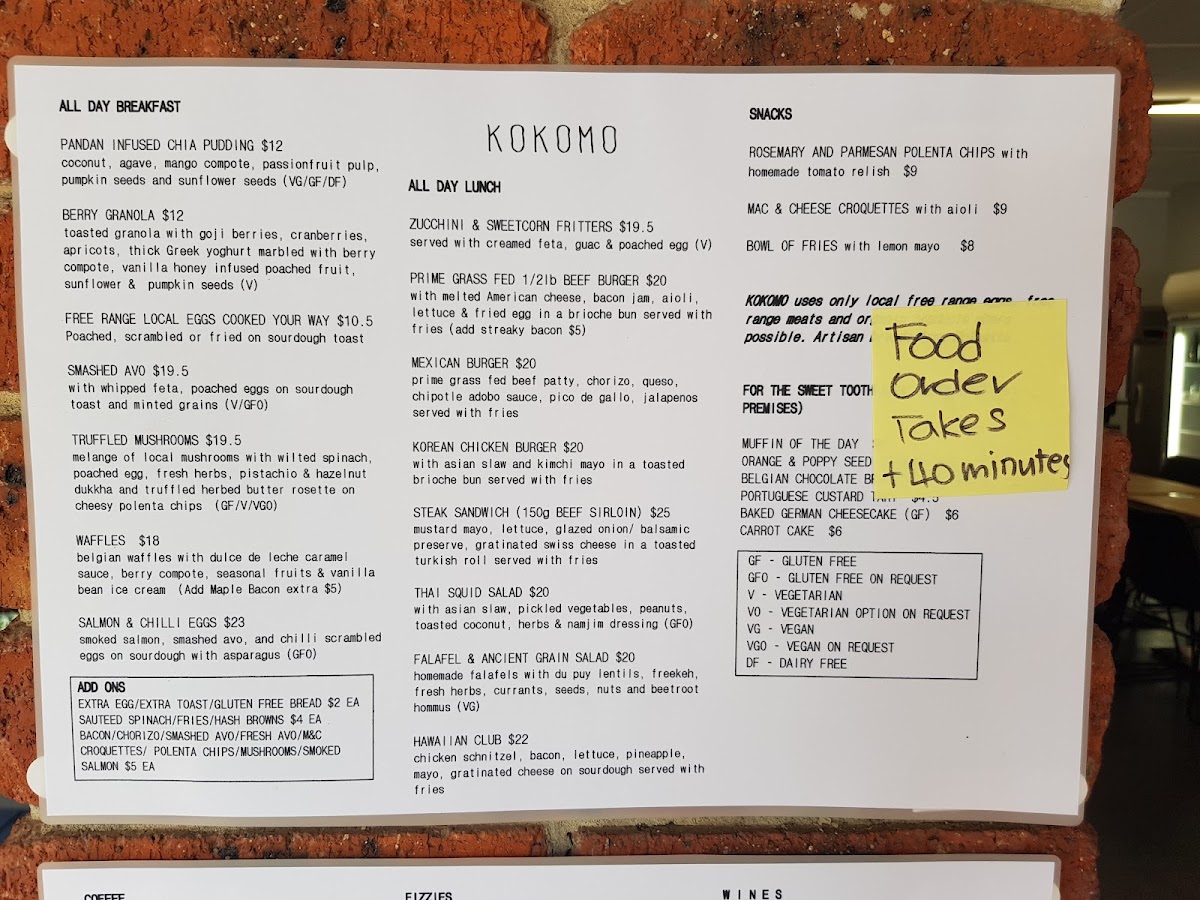 ALL DAY BREAKFAST
PANDAN INFUSED CHIA PUDDING $12
coconut, agave, mango compote, passionfruit pulp,
pumpkin seeds and sunflower seeds (VG/GF/DF)
BERRY GRANOLA $12
toasted granola with goji berries, cranberries,
apricots, thick Greek yoghurt marbled with berry
compote, vanilla honey infused poached fruit,
sunflower & pumpkin seeds (V)
FREE RANGE LOCAL EGGS COOKED YOUR WAY $10.5
Poached, scrambled or fried on sourdough toast
SMASHED AVO $19.5
with whipped feta, poached eggs on sourdough
toast and minted grains (V/GFO)
TRUFFLED MUSHROOMS $19.5
melange of local mushrooms with wilted spinach,
poached egg, fresh herbs, pistachio & hazelnut
dukkha and truffled herbed butter rosette on
cheesy polenta chips (GF/V/VGO)
WAFFLES $18
belgian waffles with dulce de leche caramel
sauce, berry compote, seasonal fruits & vanilla
bean ice cream (Add Maple Bacon extra $5)
SALMON & CHILLI EGGS $23
smoked salmon, smashed avo, and chilli scrambled
eggs on sourdough with asparagus (GFO)
ADD ONS
EXTRA EGG/EXTRA TOAST/GLUTEN FREE BREAD $2 EA
SAUTEED SPINACH/FRIES/HASH BROWNS $4 EA
BACON/CHORIZO/SMASHED AVO/FRESH AVO/M&C
CROQUETTES/ POLENTA CHIPS/MUSHROOMS/SMOKED
SALMON $5 EA
KOKOMO
ALL DAY LUNCH
ZUCCHINI & SWEETCORN FRITTERS $19.5
served with creamed feta, guac & poached egg (V)
PRIME GRASS FED 1/2lb BEEF BURGER $20
with melted American cheese, bacon jam, aioli,
lettuce & fried egg in a brioche bun served with
fries (add streaky bacon $5)
MEXICAN BURGER $20
prime grass fed beef patty, chorizo, queso,
chipotle adobo sauce, pico de gallo, jalapenos
served with fries
KOREAN CHICKEN BURGER $20
with asian slaw and kimchi mayo in a toasted
brioche bun served with fries
STEAK SANDWICH (150g BEEF SIRLOIN) $25
mustard mayo, lettuce, glazed onion/ balsamic
preserve, gratinated swiss cheese in a toasted
turkish roll served with fries
THAI SQUID SALAD $20
with asian slaw, pickled vegetables, peanuts,
toasted coconut, herbs & namjim dressing (GFO)
FALAFEL & ANCIENT GRAIN SALAD $20
homemade falafels with du puy lentils, freekeh,
fresh herbs, currants, seeds, nuts and beetroot
hommus (VG)
HAWAIIAN CLUB $22
chicken schnitzel, bacon, lettuce, pineapple,
mayo, gratinated cheese on sourdough served with
fries
SNACKS
ROSEMARY AND PARMESAN POLENTA CHIPS with
homemade tomato relish $9
MAC & CHEESE CROQUETTES with aioli $9
BOWL OF FRIES with lemon mayo $8
KOKOMO uses only local free range eggs, free
range meats and
possible. Artisan
FOR THE SWEET TOOTH
PREMISES)
MUFFIN OF THE DAY
ORANGE & POPPY SEED
BELGIAN CHOCOLATE
PORTUGUESE CUSTARD TART $4.5
BAKED GERMAN CHEESECAKE (GF) $6
CARROT CAKE $6
Food
order
Takes
+40 minutes
GF - GLUTEN FREE
GFO - GLUTEN FREE ON REQUEST
V - VEGETARIAN
VO - VEGETARIAN OPTION ON REQUEST
VG - VEGAN
VGO - VEGAN ON REQUEST
DF - DAIRY FREE
COFFEE
FIZZIES
WINES